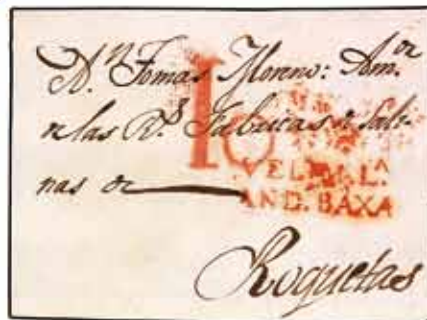 A Dn Tomas Moreno: Amor
de las Rs Fabricas de Sali-
nas de
10
VELEZ MLA
AND. BAXA
Roquetas